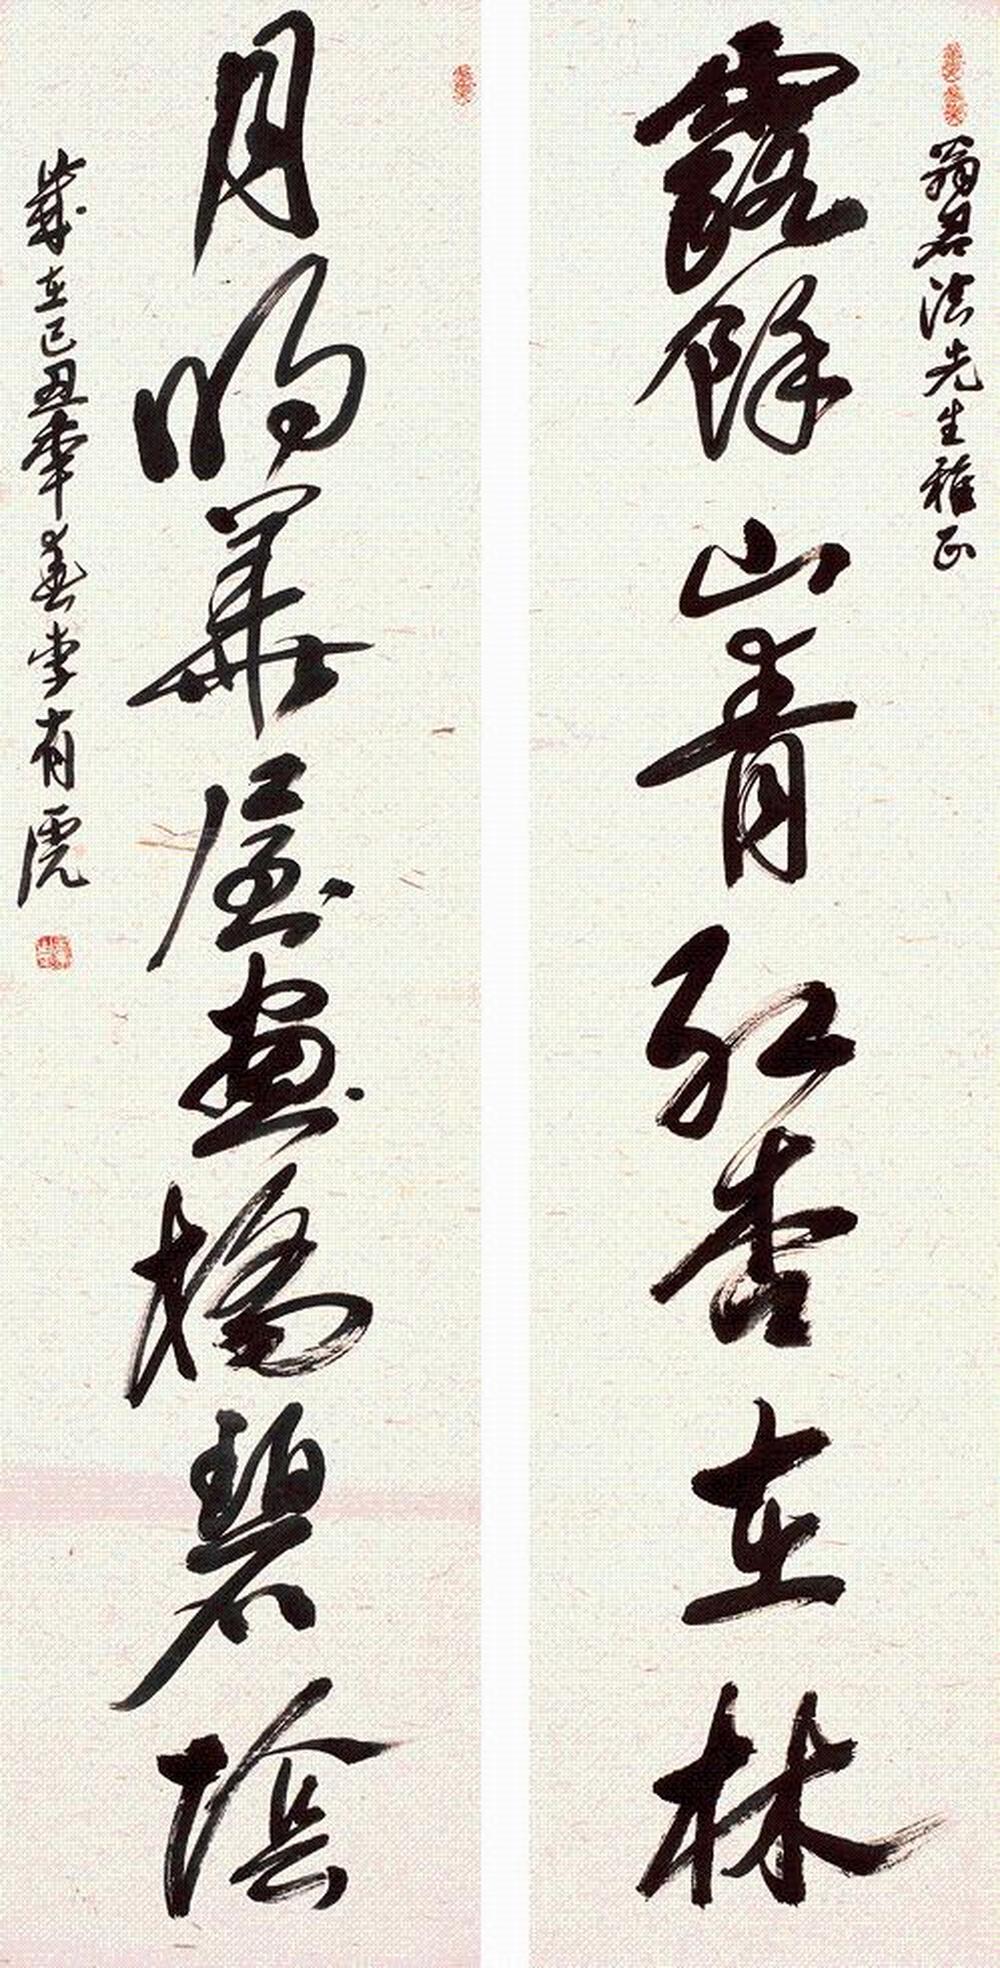 翁君法先生雅正
露餘山青紅杏在林
月明華屋畫橋碧陰
歲在己丑年春李有